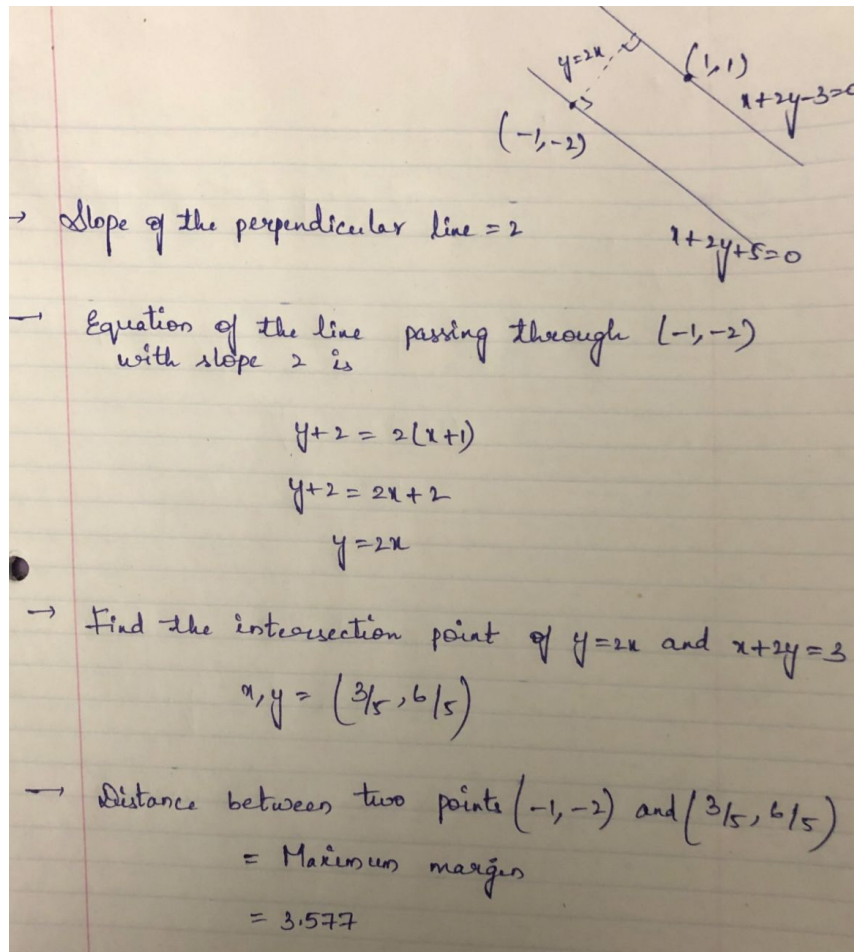 y=2x
(1,1)
x+2y-3=0
(-1,-2)
→ Slope of the perpendicular line = 2
x+2y+5=0
→ Equation of the line passing through (-1,-2)
with slope 2 is
y+2 = 2(x+1)
y+2 = 2x+2
y=2x
→ Find the intersection point of y=2x and x+2y=3
x,y = (3/5, 6/5)
→ Distance between two points (-1,-2) and (3/5, 6/5)
= Maximum margin
= 3.577